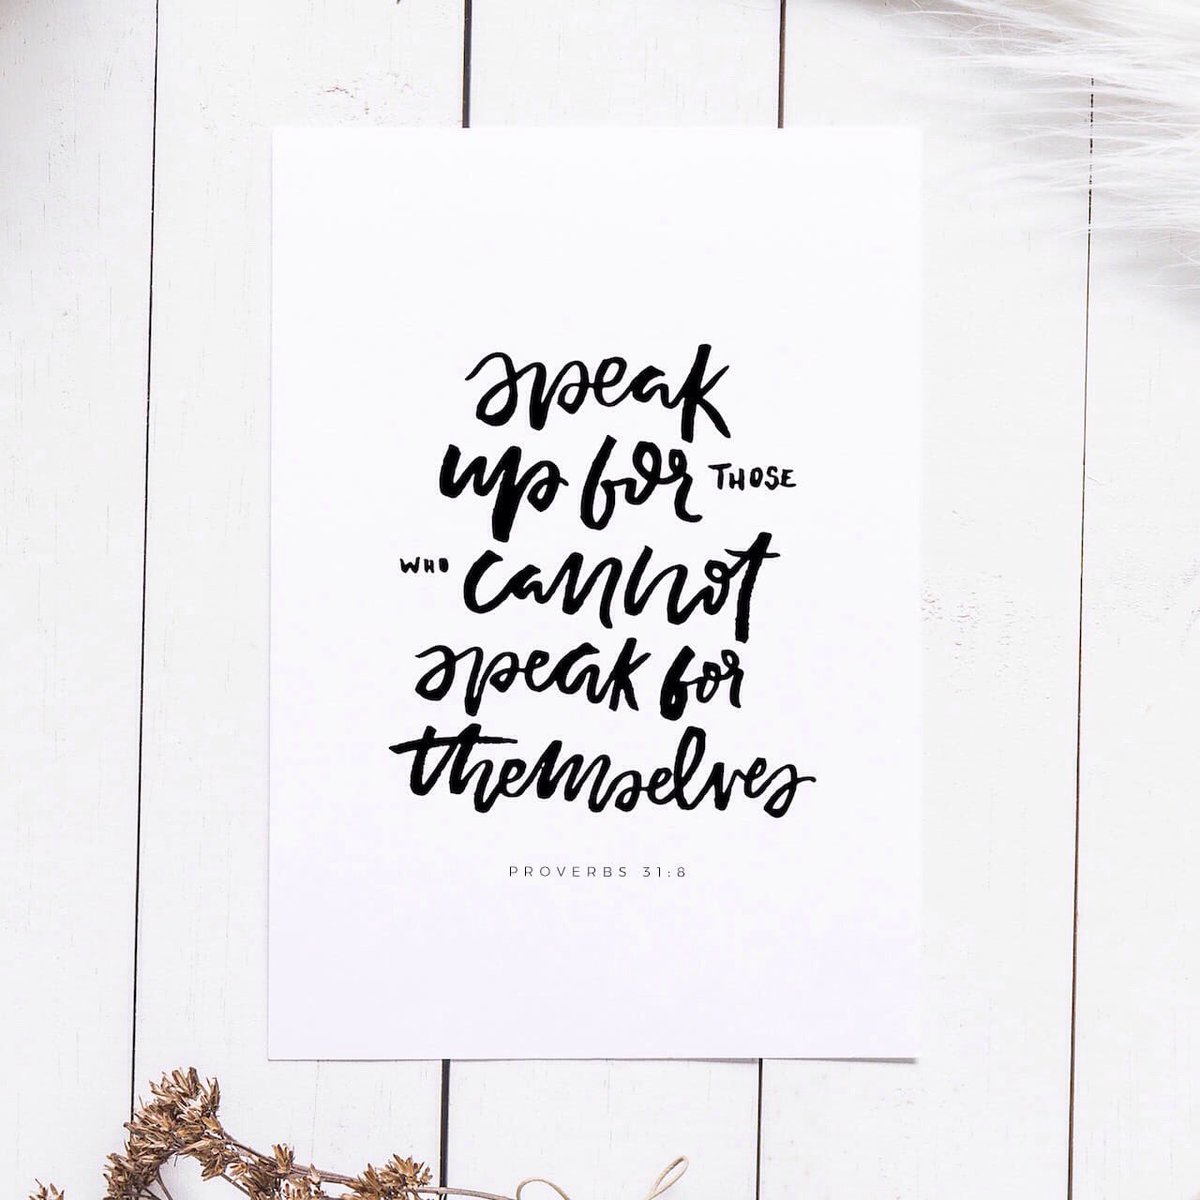 speak
up for THOSE
WHO cannot
speak for
themselves
PROVERBS 31:8